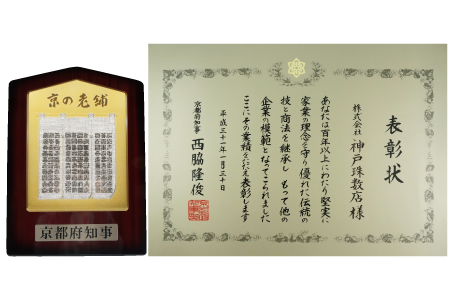 京の老舗
京都府知事
表彰状
株式会社 神戸珠数店様
あなたは百年以上にわたり堅実に
家業の理念を守り優れた伝統の
技と商法を継承し もって他の
企業の模範となってこられました
ここにその業績をたたえ表彰します
平成三十一年一月三十日
京都府知事 西脇隆俊